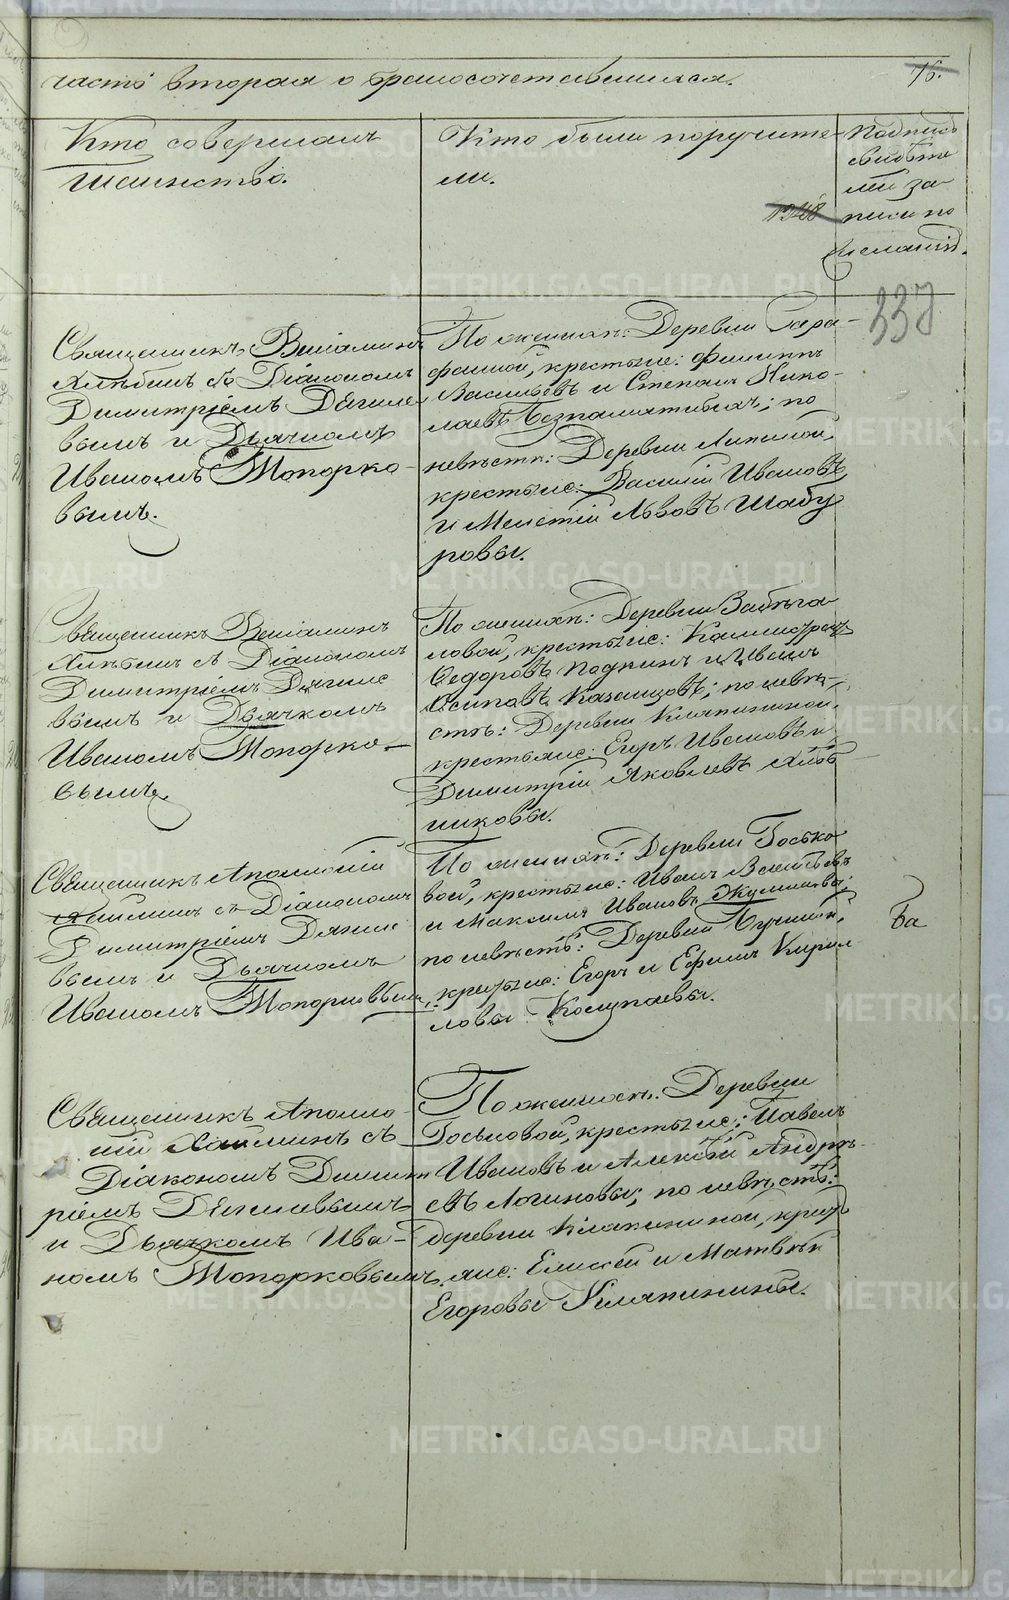 часть вторая о бракосочетавшихся.
76.
Кто совершалъ
таинство.
Кто были поручите-
ли.
Подпись
свидѣте
лей за-
писи по
желанію.
337
Священникъ Веніаминъ
Хлѣбинъ съ Діакономъ
Димитріемъ Дягиле-
вымъ и Дьячкомъ
Иваномъ Топорко-
вымъ.
По женихѣ: Деревни Сара-
фанной, крестьяне: Филиппъ
Васильевъ и Степанъ Нико-
лаевъ Безпаматныхъ; по
невѣстѣ: Деревни Липиной,
крестьяне: Василій Ивановъ
и Мелетій Львовъ Шабу
ровы.
Священникъ Веніаминъ
Хлѣбинъ съ Діакономъ
Димитріемъ Дягиле
вымъ и Дьячкомъ
Иваномъ Топорко-
вымъ.
По женихѣ: Деревни
ловой, крестьяне:
Ѳедоровъ и Иванъ
Осиповъ Казанцовъ; по невѣ-
стѣ: Деревни Кляпининой,
крестьяне: Егоръ Ивановъ и
Димитрій Яковлевъ
никовы.
Священникъ Аполлоній
съ Діакономъ
Димитріемъ Дягиле
вымъ и Дьячкомъ
Иваномъ Топорковымъ.
По женихѣ: Деревни Госько
вой, крестьяне: Иванъ
и Максимъ Ивановъ
по невѣстѣ: Деревни Бучиной,
крестьяне: Егоръ и Ефимъ Кирил
ловы Колупаевы.
Ба
Священникъ Аполло-
ній съ
Діакономъ Димит
ріемъ Дягилевымъ
и Дьячкомъ Ива-
номъ Топорковымъ.
По женихѣ: Деревни
Госьковой, крестьяне: Павелъ
Ивановъ и Алексѣй Андре-
евъ Логиновы; по невѣстѣ:
деревни Кляпининой, кресть
яне: Елисей и Матвѣй
Егоровы Кляпинины.
METRIKI.GASO-URAL.RU